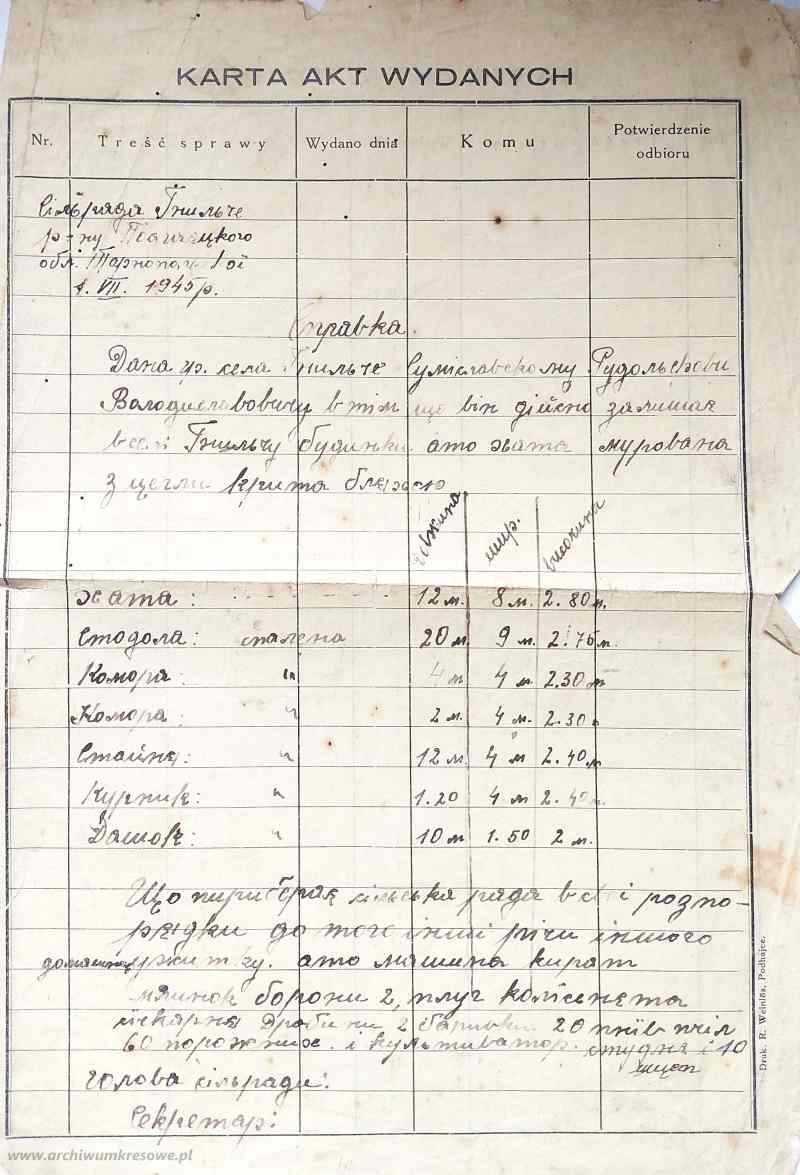 KARTA AKT WYDANYCH
Nr.
Treść sprawy
Wydano dnia
Komu
Potwierdzenie odbioru
Сільрада Гнильче
р-ну Підгаєцкого
обл. Тарнопільскої
VII. 1945р.
Справка.
Дана гр. села Гнильче Рудольфови
в тім що він дійсно залишає
в селі Гнильчу будинки ато хата мурована
з цегли крита бляхою
довжина шир. височина
хата: 12 м. 8 м. 2.80 м.
Стодола: спалена 20 м. 9 м. 2.75 м.
Комора: " 4 м 4 м 2.30 м
Комора: " 2 м. 4 м. 2.30 м
Стайня: " 12 м. 4 м 2.40 м
Курник: " 1.20 4 м 2.40 м.
Дашок: " 10 м 1.50 2 м.
Що сільська рада в свої розпо-
рядку до того інші річи іншого
домашного ужитку. ато машина кират
млинок борони 2, плуг
дробини 2 20 пнів пчіл
60 порожних. і культиватор. студня і 10
Голова сільради:
Секретар:
Druk. R. Weinlös, Podhajce.
www.archiwumkresowe.pl